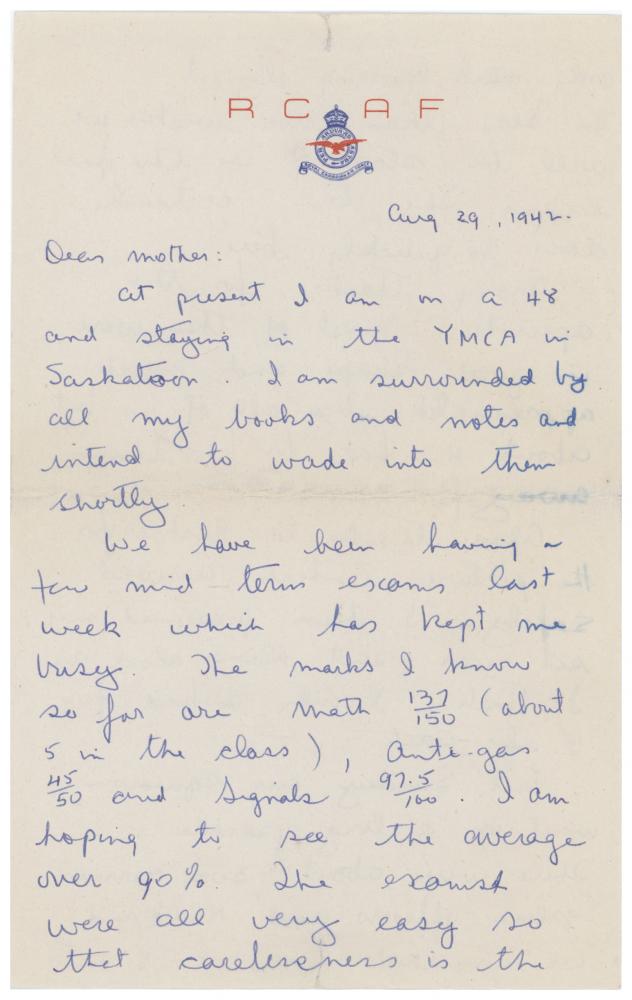 R C A F
PER ARDUA AD ASTRA
ROYAL CANADIAN AIR FORCE
Aug 29, 1942.
Dear mother:
At present I am on a 48
and staying in the YMCA in
Saskatoon. I am surrounded by
all my books and notes and
intend to wade into them
shortly.
We have been having a
few mid term exams last
week which has kept me
busy. The marks I know
so far are Math 137/150 (about
5 in the class), Anti-gas
45/50 and Signals 97.5/100. I am
hoping to see the average
over 90%. The exams
were all very easy so
that carelessness is the